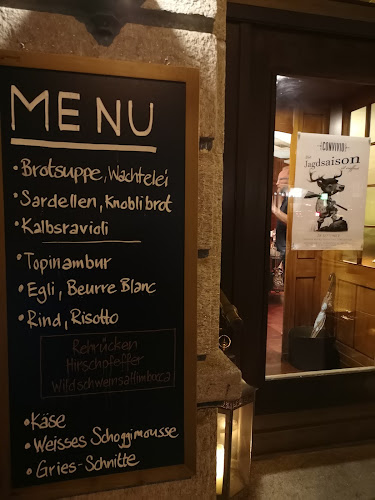 MENU
• Brotsuppe, Wachtelei
• Sardellen, Knoblibrot
• Kalbsravioli
• Topinambur
• Egli, Beurre Blanc
• Rind, Risotto
Rehrücken
Hirschpfeffer
Wildschweinsaltimbocca
• Käse
• Weisses Schoggimousse
• Gries-Schnitte
CONVIVIO
Jagdsaison